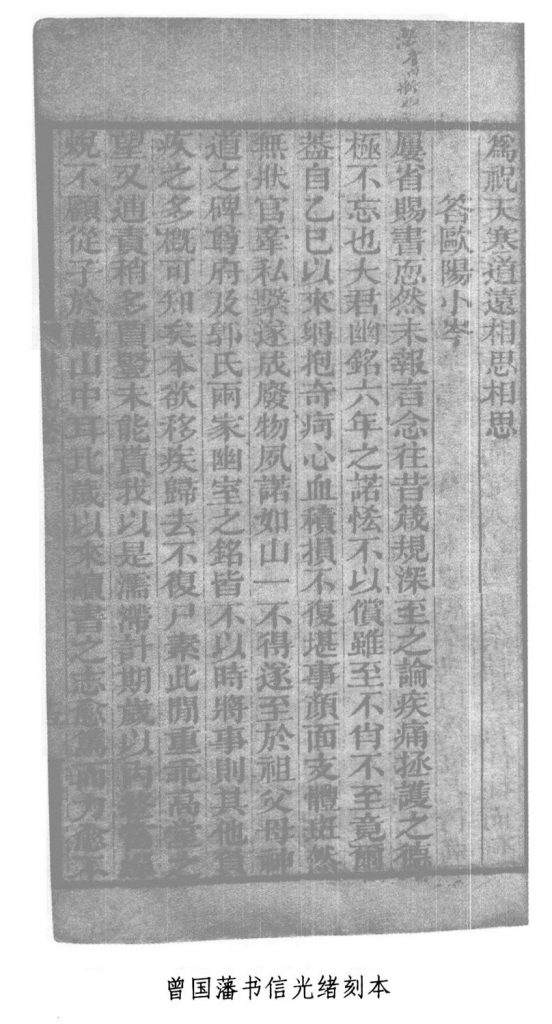 為祝天寒道遠相思相思
答歐陽小岑
屢省賜書恧然未報言念往昔箴規深至之論疾痛拯護之德
極不忘也大君幽銘六年之諾恡不以償雖至不肖不至竟爾
蓋自乙巳以來躬抱奇疴心血積損不復堪事顏面支體斑然
無狀官牽私繫遂成廢物夙諾如山一不得遂至於祖父母神
道之碑尊府及郭氏兩家幽室之銘皆不以時將事則其他負
疚之多概可知矣本欲移疾歸去不復尸素此閒重乖高堂之
望又逋責稍多賈豎未能貰我以是濡滯計期歲以內
蛻不顧從子於萬山中耳比歲以來讀書之志愈篤而力愈不
曾国藩书信光绪刻本